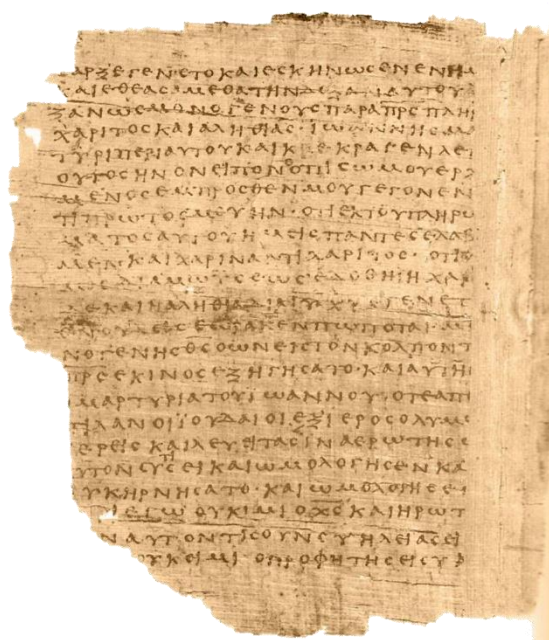 ΑΡΞΕΓΕΝΕΤΟΚΑΙΕϹΚΗΝωϹΕΝΕΝΗΜ
ΑΙΕΘΕΑϹΑΜΕΘΑΤΗΝΔΟΞΑΝΑΥΤΟΥ
ΞΑΝωϹΜΟΝΟΓΕΝΟΥϹΠΑΡΑΠΡϹΠΛΗ
ΧΑΡΙΤΟϹΚΑΙΑΛΗΘΙΑϹ·ΙωΑΝΝΗϹΜΑ
ΤΥΡΙΠΕΡΙΑΥΤΟΥΚΑΙΚΕ·ΚΡΑΓΕΝΛΕΓ
ΟΥΤΟϹΗΝΟΝΕΙΠΟΝΟΟΠΙϹωΜΟΥΕΡΧ
ΜΕΝΟϹΕΜΠΡΟϹΘΕΝΜΟΥΓΕΓΟΝΕΝ
ΤΙΠΡωΤΟϹΜΟΥΗΝ·ΟΤΙΕΚΤΟΥΠΛΗΡω
ΜΑΤΟϹΑΥΤΟΥΗΜΕΙϹΠΑΝΤΕϹΕΛΑΒ
ΜΕΝ·ΚΑΙΧΑΡΙΝΑΝΤΙΧΑΡΙΤΟϹ·ΟΤΙ
ΜΟϹΔΙΑΜωΥϹΕωϹΕΔΟΘΗΗΧΑΡ
ΕΚΑΙΗΑΛΗΘΙΑΔΙΑΙΥΧΥΕΓΕΝΕΤ
ΟΥΔΕΙϹΕωΡΑΚΕΝΠωΠΟΤΑΙ·Μ
ΝΟΓΕΝΗϹΘϹΟωΝΕΙϹΤΟΝΚΟΛΠΟΝΤ
ΠΡϹΕΚΙΝΟϹΕΞΗΓΗϹΑΤΟ·ΚΑΙΑΥΤΗ
ΜΑΡΤΥΡΙΑΤΟΥΙωΑΝΝΟΥ·ΟΤΕΑΠΕ
ΤΙΛΑΝΟΙΪΟΥΔΑΙΟΙΕΞΙΕΡΟϹΟΛΥΜω
ΕΡΕΙϹΚΑΙΛΕΥΕΙΤΑϹΙΝΑΕΡωΤΗϹ
ΥΤΟΝϹΥΤΙϹΕΙΚΑΙωΜΟΛΟΓΗϹΕΝΚΑ
ΥΚΗΡΝΗϹΑΤΟ·ΚΑΙωΜΟΛΟΓΗϹΕ
ΤΙΕΓωΟΥΚΙΜΙΟΧϹΚΑΙΗΡωΤ
ΝΑΥΤΟΝΤΙϹΟΥΝϹΥΗΛΕΙΑϹΕΙ
ΟΥΚΕΙΜΙΟΠΡΟΦΗΤΗϹΕΙϹΥ